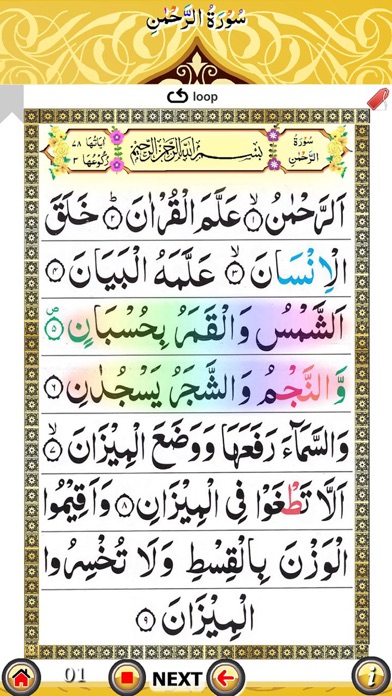 سُوْرَةُ الرَّحْمٰنِ
loop
سُوْرَةُ الرَّحْمٰنِ
بِسْمِ اللهِ الرَّحْمٰنِ الرَّحِيْمِ
اٰيَاتُهَا ٧٨
رُكُوْعُهَا ٣
اَلرَّحْمٰنُ ۙ﴿۱﴾ عَلَّمَ الْقُرْاٰنَ ؕ﴿۲﴾ خَلَقَ
الْاِنْسَانَ ۙ﴿۳﴾ عَلَّمَهُ الْبَيَانَ ﴿۴﴾
اَلشَّمْسُ وَالْقَمَرُ بِحُسْبَانٍ ۪﴿۵﴾
وَّالنَّجْمُ وَالشَّجَرُ يَسْجُدٰنِ ﴿۶﴾
وَالسَّمَآءَ رَفَعَهَا وَوَضَعَ الْمِيْزَانَ ۙ﴿۷﴾
اَلَّا تَطْغَوْا فِى الْمِيْزَانِ ﴿۸﴾ وَاَقِيْمُوا
الْوَزْنَ بِالْقِسْطِ وَلَا تُخْسِرُوا
الْمِيْزَانَ ﴿۹﴾
01 NEXT i